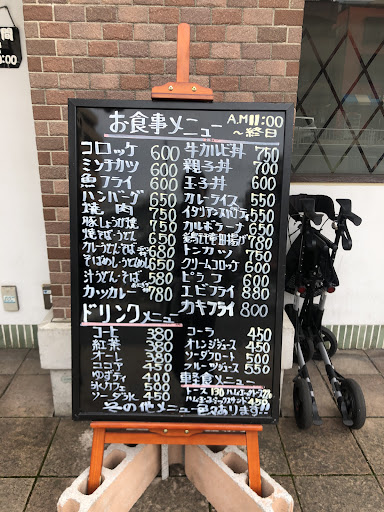 お食事メニュー
A.M11:00
～終日
コロッケ 600
ミンチカツ 600
魚フライ 600
ハンバーグ 650
焼肉 700
豚しょうが焼 700
焼そば・うどん 650
カレーうどん・そば 680
そばめし・うどんめし 650
汁うどん・そば 580
カツカレー 780
牛カルビ丼 750
親子丼 700
玉子丼 600
カレーライス 550
イタリアンスパゲティ 550
カルボラーナ 700
トンカツ 750
クリームコロッケ 600
ピラフ 600
エビフライ 880
カキフライ 800
ドリンクメニュー
コーヒー 380
紅茶 380
オーレ 380
ココア 450
ゆずティ 400
氷カフェ 450
ソーダ氷 450
コーラ 450
オレンジジュース 450
ソーダフロート 500
フルーツジュース 550
軽食メニュー
トースト 130
その他メニュー色々あります!!